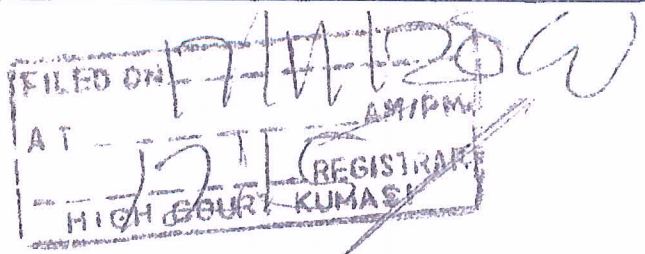 FILED ON 17/11/20
AT AM/PM
REGISTRAR
HIGH COURT KUMASI